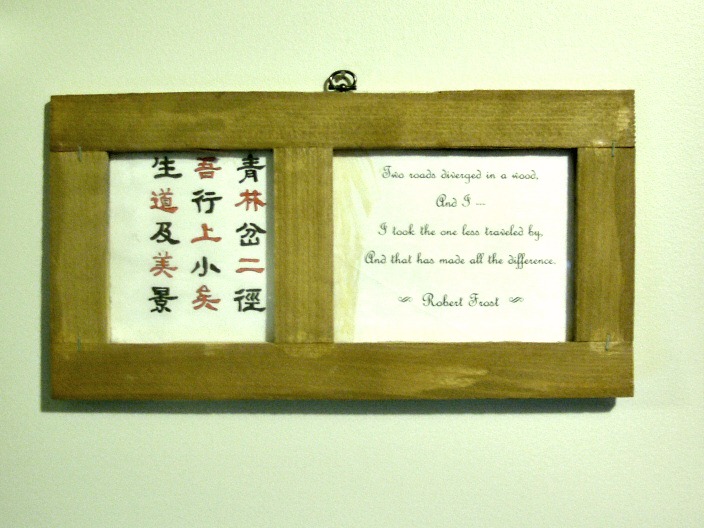 青林岔二徑
吾行上小矣
生道及美景
Two roads diverged in a wood,
And I ---
I took the one less traveled by,
And that has made all the difference.
Robert Frost